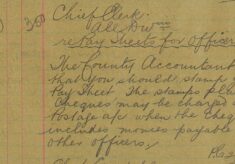 30 Chief Clerk.
All
re Pay Sheets for Officer
The County Accountant
that you should stamp
Pay Sheet. The stamps
Cheques may be charged
Postage a/c when the Cheq
includes monies payable
other officers.